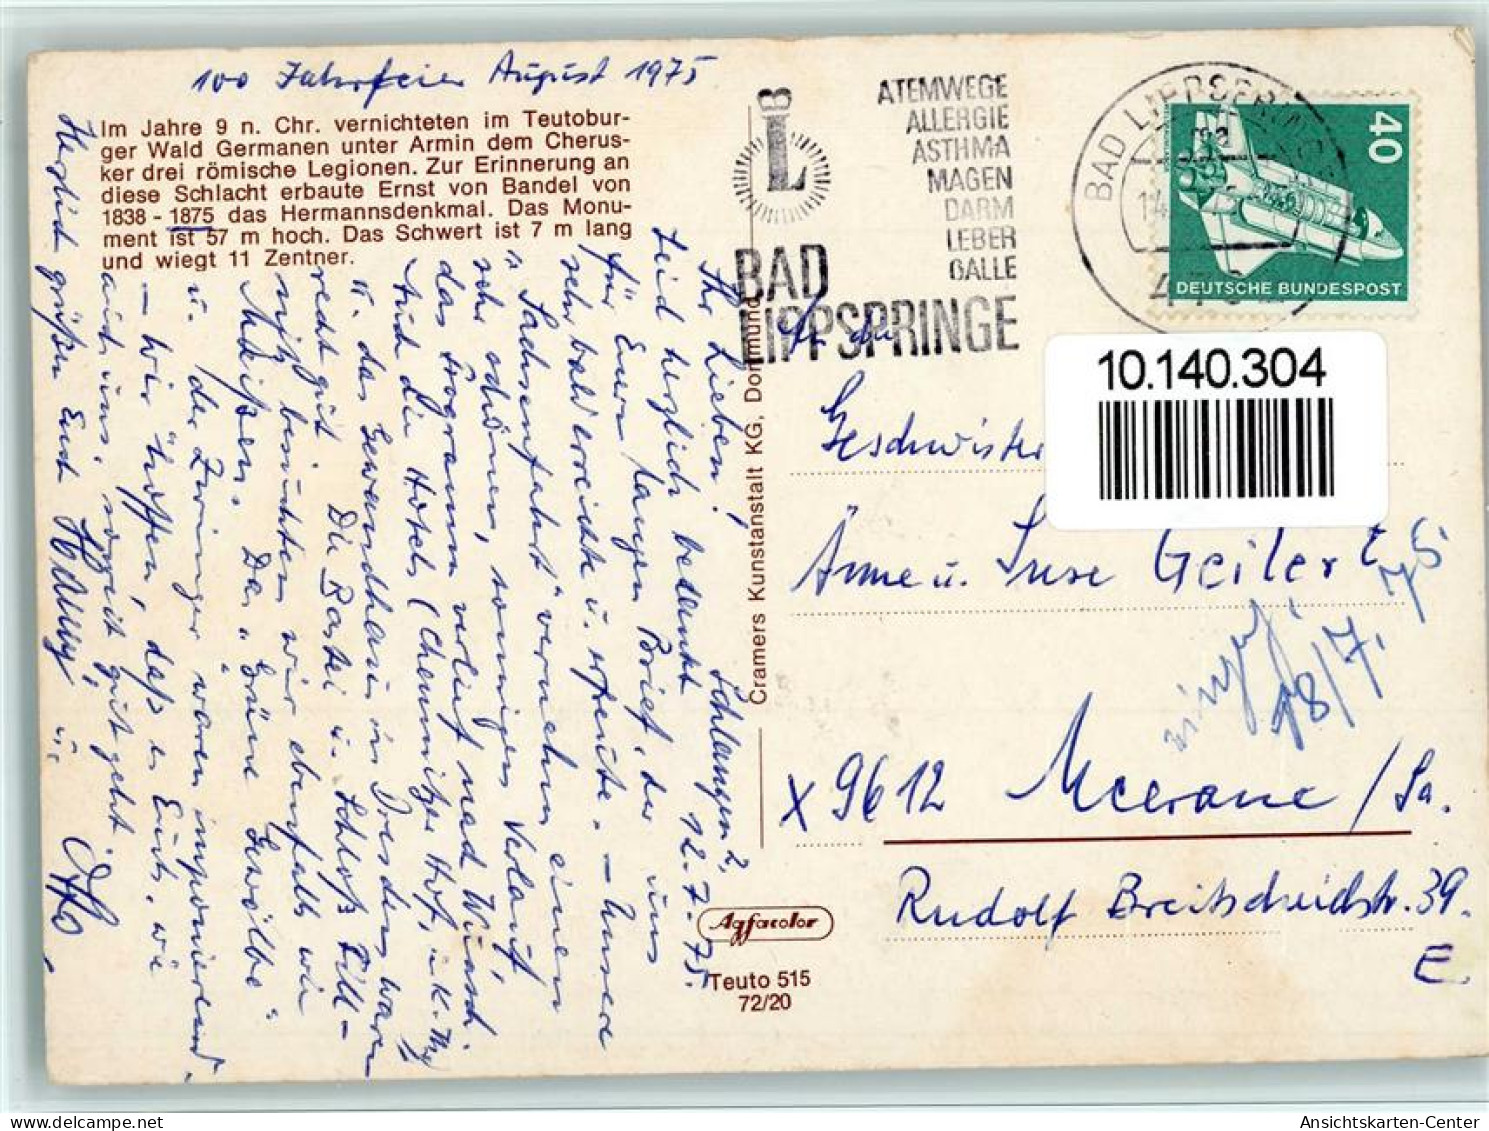 100 Jahrfeier August 1975
Im Jahre 9 n. Chr. vernichteten im Teutobur-
ger Wald Germanen unter Armin dem Cherus-
ker drei römische Legionen. Zur Erinnerung an
diese Schlacht erbaute Ernst von Bandel von
1838 - 1875 das Hermannsdenkmal. Das Monu-
ment ist 57 m hoch. Das Schwert ist 7 m lang
und wiegt 11 Zentner.
Schlangen 2, 12.7.75.
Ihr Lieben!
Seid herzlich bedankt
für Euern langen Brief, der uns
sehr bald erreichte u. erfreute. - Unsere
"Sachsenfahrt" vernahm einen
sehr schönen, sonnigen Verlauf,
das Programm verlief nach Wunsch.
Auch die Hotels (Chemnitzer Hof, in K. M.
u. das Gewandhaus in Dresden waren
recht gut. Die Bastei u. Schloß Pill-
nitz besuchten wir ebenfalls wie
Meißen. Das "Grüne Gewölbe"
u. der Zwinger waren imponierend.
- Wir hoffen, daß es Euch, wie
auch uns, soweit gut geht.
Herzlich grüßen Euch Hanny u. Otto
B
L
BAD
LIPPSPRINGE
ATEMWEGE
ALLERGIE
ASTHMA
MAGEN
DARM
LEBER
GALLE
BAD LIPPSPRINGE
40
DEUTSCHE BUNDESPOST
10.140.304
An die
Geschwister
Änne u. Suse Geilert
eingeg. 18/7. 75
X 9612 Meerane/Sa.
Rudolf Breitscheidstr. 39.
E
Cramers Kunstanstalt KG, Dortmund
Agfacolor
Teuto 515
72/20
Ansichtskarten-Center